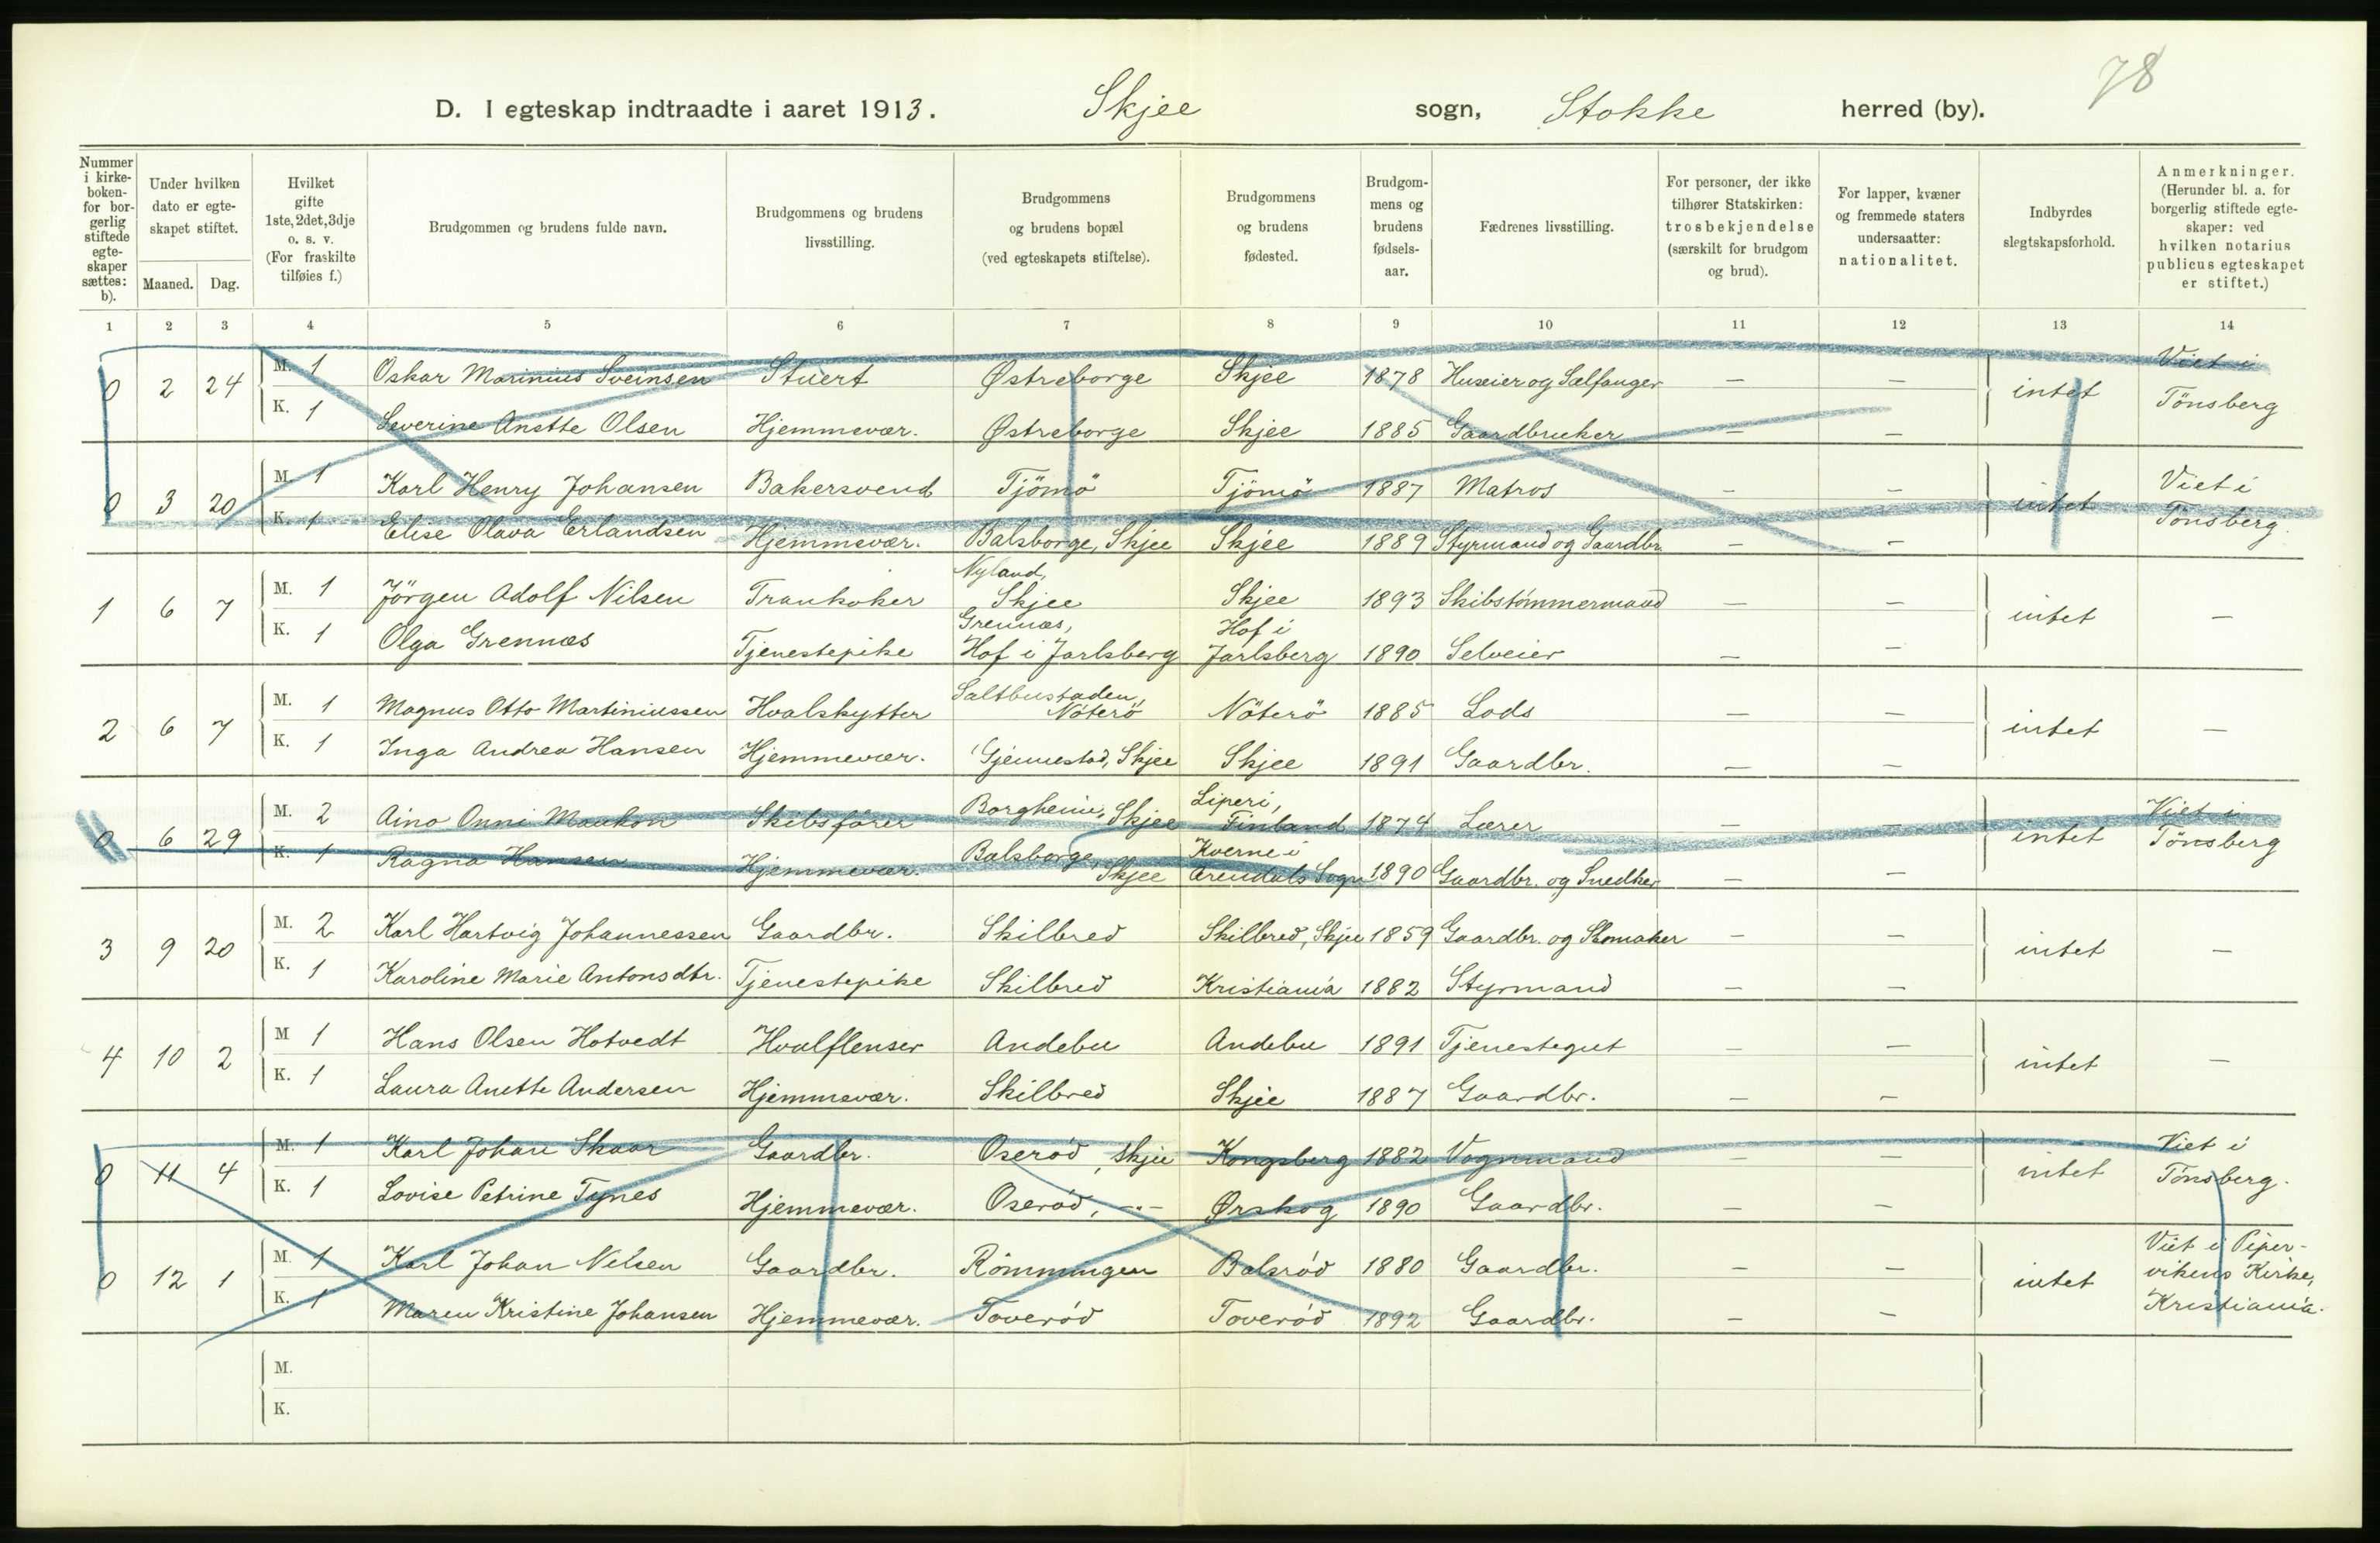 78
D. I egteskap indtraadte i aaret 1913. Skjee sogn, Stokke herred (by).
Nummer i kirke-boken- for bor-gerlig stiftede egte-skaper sættes: b).
Under hvilken dato er egte-skapet stiftet.
Maaned. Dag.
Hvilket gifte 1ste, 2det, 3dje o. s. v. (For fraskilte tilføies f.)
Brudgommen og brudens fulde navn.
Brudgommens og brudens livsstilling.
Brudgommens og brudens bopæl (ved egteskapets stiftelse).
Brudgommens og brudens fødested.
Brudgom-mens og brudens fødsels-aar.
Fædrenes livsstilling.
For personer, der ikke tilhører Statskirken: trosbekjendelse (særskilt for brudgom og brud).
For lapper, kvæner og fremmede staters undersaatter: nationalitet.
Indbyrdes slegtskapsforhold.
Anmerkninger. (Herunder bl. a. for borgerlig stiftede egte-skaper: ved hvilken notarius publicus egteskapet er stiftet.)
1 2 3 4 5 6 7 8 9 10 11 12 13 14
0 2 24 M. 1 Oskar Marinius Sveinsen Stuert Østreborge Skjee 1878 Huseier og Sælfanger — — intet Viet i Tönsberg
K. 1 Severine Anette Olsen Hjemmevær. Østreborge Skjee 1885 Gaardbruker — —
0 3 20 M. 1 Karl Henry Johansen Bakersvend Tjömö Tjömö 1887 Matros — — intet Viet i Tönsberg.
K. 1 Elise Olava Erlandsen Hjemmevær. Balsborge, Skjee Skjee 1889 Styrmand og Gaardbr. — —
1 6 7 M. 1 Jörgen Adolf Nilsen Trankoker Nyland, Skjee Skjee 1893 Skibstömmermand — — intet —
K. 1 Olga Grennæs Tjenestepike Grennæs, Hof i Jarlsberg Hof i Jarlsberg 1890 Selveier — —
2 6 7 M. 1 Magnus Otto Martiniussen Hvalskytter Saltbustaden, Nöterö Nöterö 1885 Lods — — intet —
K. 1 Inga Andrea Hansen Hjemmevær. Gjennestad, Skjee Skjee 1891 Gaardbr. — —
0 6 29 M. 2 Aino Onni Maukon Skibsförer Borgheim, Skjee Liperi, Finland 1874 Lærer — — intet Viet i Tönsberg
K. 1 Ragna Hansen Hjemmevær. Balsborge, Skjee Kverne i Arendals Sogn 1890 Gaardbr. og Snedker — —
3 9 20 M. 2 Karl Hartvig Johannessen Gaardbr. Skilbred Skilbred, Skjee 1859 Gaardbr. og Skomaker — — intet —
K. 1 Karoline Marie Antonsdtr. Tjenestepike Skilbred Kristiania 1882 Styrmand — —
4 10 2 M 1 Hans Olsen Hotvedt Hvalflenser Andebu Andebu 1891 Tjenestegut — — intet —
K. 1 Laura Anette Andersen Hjemmevær. Skilbred Skjee 1887 Gaardbr. — —
0 11 4 M. 1 Karl Johan Skaar Gaardbr. Oseröd, Skjee Kongsberg 1882 Vognmand — — intet Viet i Tönsberg.
K. 1 Lovise Petrine Tynes Hjemmevær. Oseröd, -"- Ørskog 1890 Gaardbr. — —
0 12 1 M. 1 Karl Johan Nilsen Gaardbr. Römmingen Bolsröd 1880 Gaardbr. — — intet Viet i Piper-vikens Kirke, Kristiania.
K. 1 Maren Kristine Johansen Hjemmevær. Toveröd Toveröd 1892 Gaardbr. — —
M.
K.